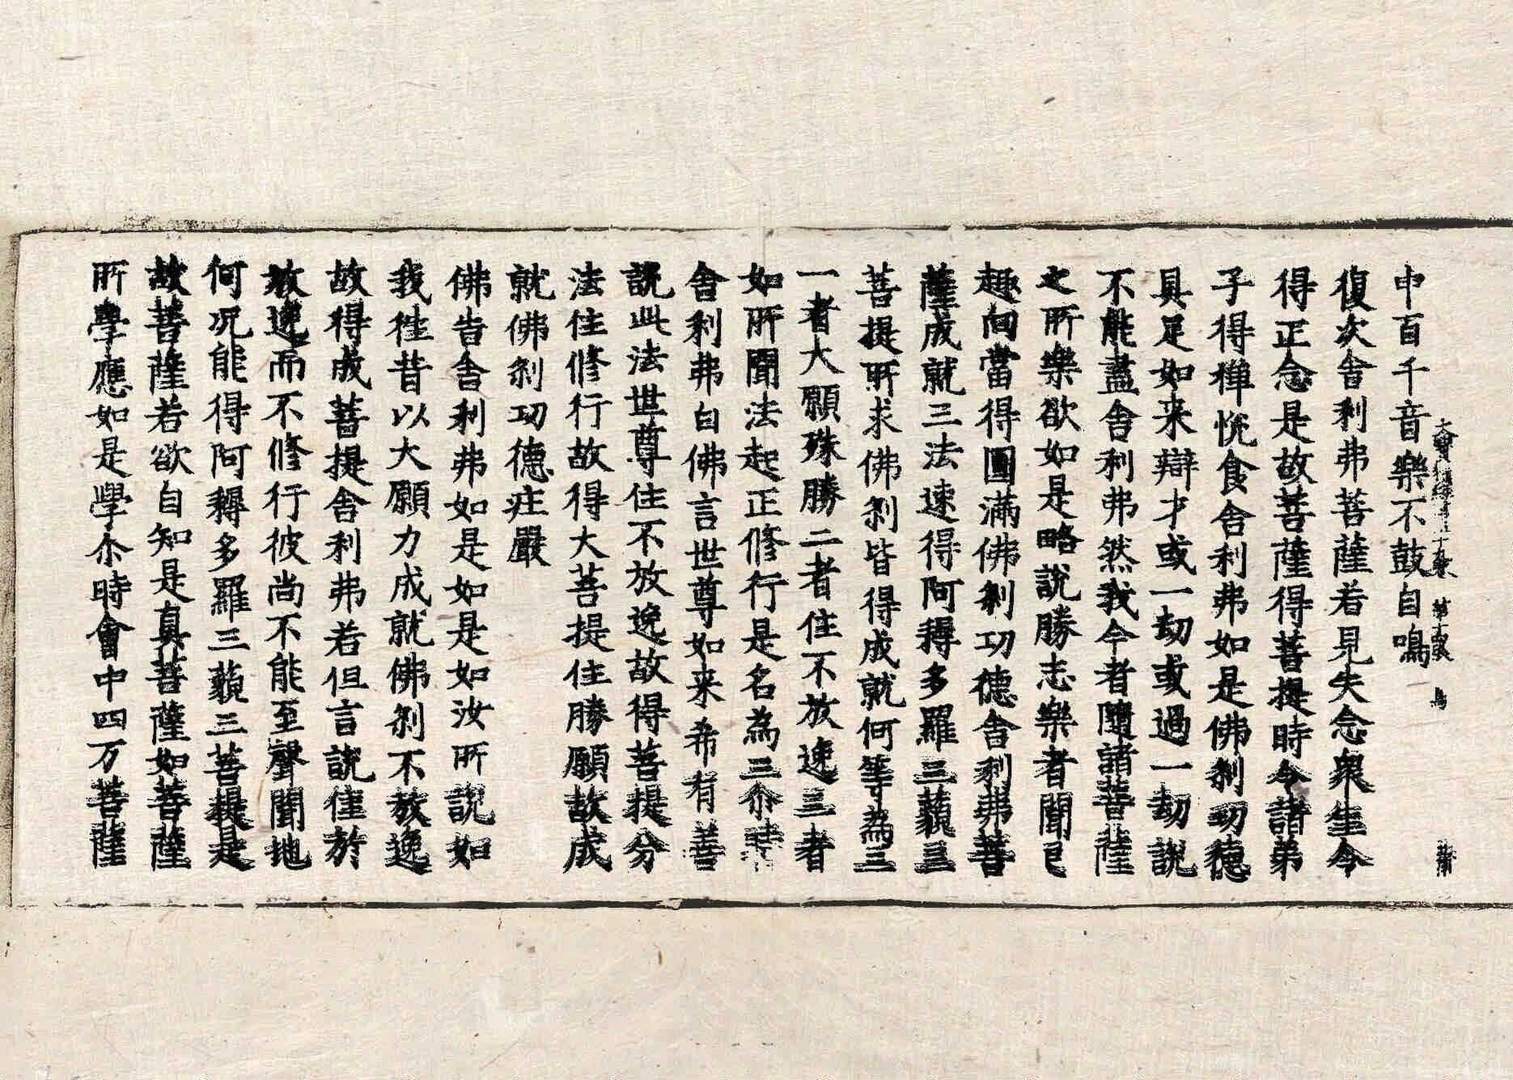 中百千音樂不鼓自鳴
復次舍利弗菩薩若見失念衆生令
得正念是故菩薩得菩提時令諸弟
子得禅悅食舍利弗如是佛刹功德
具足如来辯才或一劫或過一劫說
不能盡舍利弗然我今者隨諸菩薩
之所樂欲如是略說勝志樂者聞已
趣向當得圓滿佛刹功德舍利弗菩
薩成就三法速得阿耨多羅三藐三
菩提所求佛刹皆得成就何等為三
一者大願殊勝二者住不放逸三者
如所聞法起正修行是名為三尒時
舍利弗白佛言世尊如来希有善
說此法世尊住不放逸故得菩提分
法住修行故得大菩提住勝願故成
就佛刹功德庄嚴
佛告舍利弗如是如是如汝所說如
我徃昔以大願力成就佛刹不放逸
故得成菩提舍利弗若但言說住於
放逸而不修行彼尚不能至聲聞地
何况能得阿耨多羅三藐三菩提是
故菩薩若欲自知是真菩薩如菩薩
所學應如是學尒時會中四万菩薩